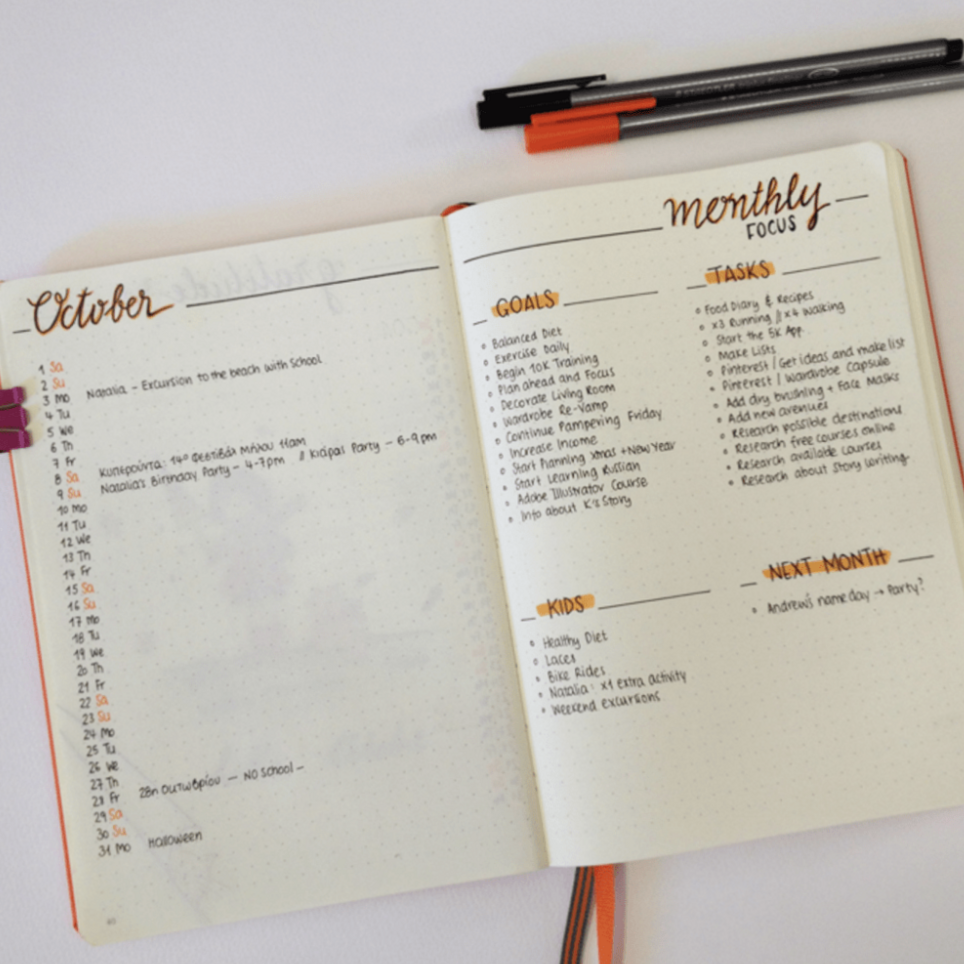 October
1 Sa
2 Su
3 Mo Natalia – Excursion to the beach with School
4 Tu
5 We
6 Th
7 Fr
8 Sa Κυπερούντα: 14ο Φεστιβάλ Μήλου 11am
9 Su Natalia's Birthday Party – 4-7pm // Party – 6-9pm
10 Mo
11 Tu
12 We
13 Th
14 Fr
15 Sa
16 Su
17 Mo
18 Tu
19 We
20 Th
21 Fr
22 Sa
23 Su
24 Mo
25 Tu
26 We
27 Th
28 Fr 28η Οκτωβρίου — NO School –
29 Sa
30 Su
31 Mo Halloween
monthly
FOCUS
GOALS
• Balanced Diet
• Exercise Daily
• Begin 10K Training
• Plan ahead and Focus
• Decorate Living Room
• Wardrobe Re-Vamp
• Continue Pampering Friday
• Increase Income
• Start Planning Xmas + New Year
• Start Learning Russian
• Adobe Illustrator Course
• Info about K's Story
TASKS
• Food Diary & Recipes
• x3 Running // x4 Walking
• Start the 5K App.
• Make Lists
• Pinterest / Get ideas and make list
• Pinterest / Wardrobe Capsule
• Add dry brushing + Face Masks
• Add new avenues
• Research possible destinations
• Research free courses online
• Research available courses
• Research about Story writing
KIDS
• Healthy Diet
• Laces
• Bike Rides
• Natalia: x1 extra activity
• Weekend excursions
NEXT MONTH
• Andrew's nameday → Party?